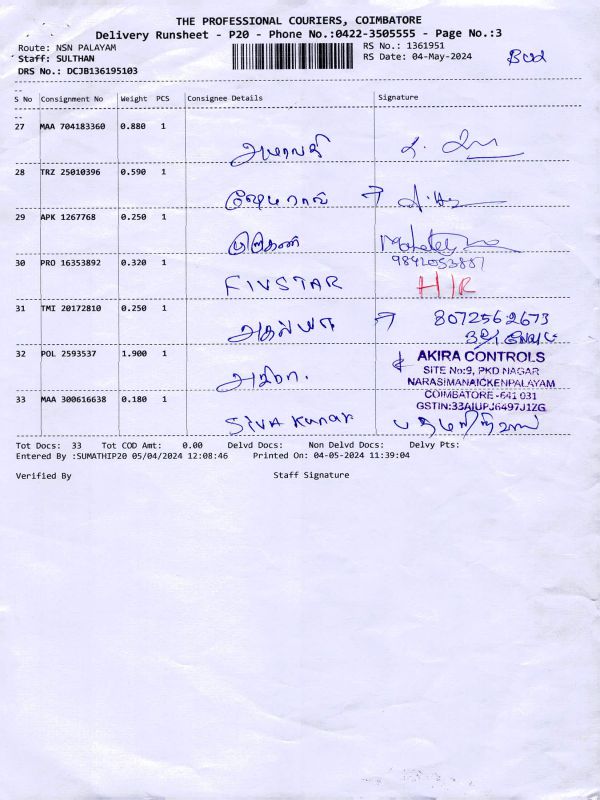 THE PROFESSIONAL COURIERS, COIMBATORE
Delivery Runsheet - P20 - Phone No.:0422-3505555 - Page No.:3
Route: NSN PALAYAM RS No.: 1361951
Staff: SULTHAN RS Date: 04-May-2024
DRS No.: DCJB136195103
S No Consignment No Weight PCS Consignee Details Signature
27 MAA 704183360 0.880 1
28 TRZ 25010396 0.590 1
29 APK 1267768 0.250 1
9842053887
30 PRO 16353892 0.320 1 FIVSTAR H/R
31 TMI 20172810 0.250 1 8072562673
32 POL 2593537 1.900 1
AKIRA CONTROLS
SITE No:9, PKD NAGAR
NARASIMANAICKENPALAYAM
COIMBATORE -641 031
GSTIN:33AIUPJ6497J1ZG
33 MAA 300616638 0.180 1 SIVA Kumar
Tot Docs: 33 Tot COD Amt: 0.00 Delvd Docs: Non Delvd Docs: Delvy Pts:
Entered By :SUMATHIP20 05/04/2024 12:08:46 Printed On: 04-05-2024 11:39:04
Verified By Staff Signature